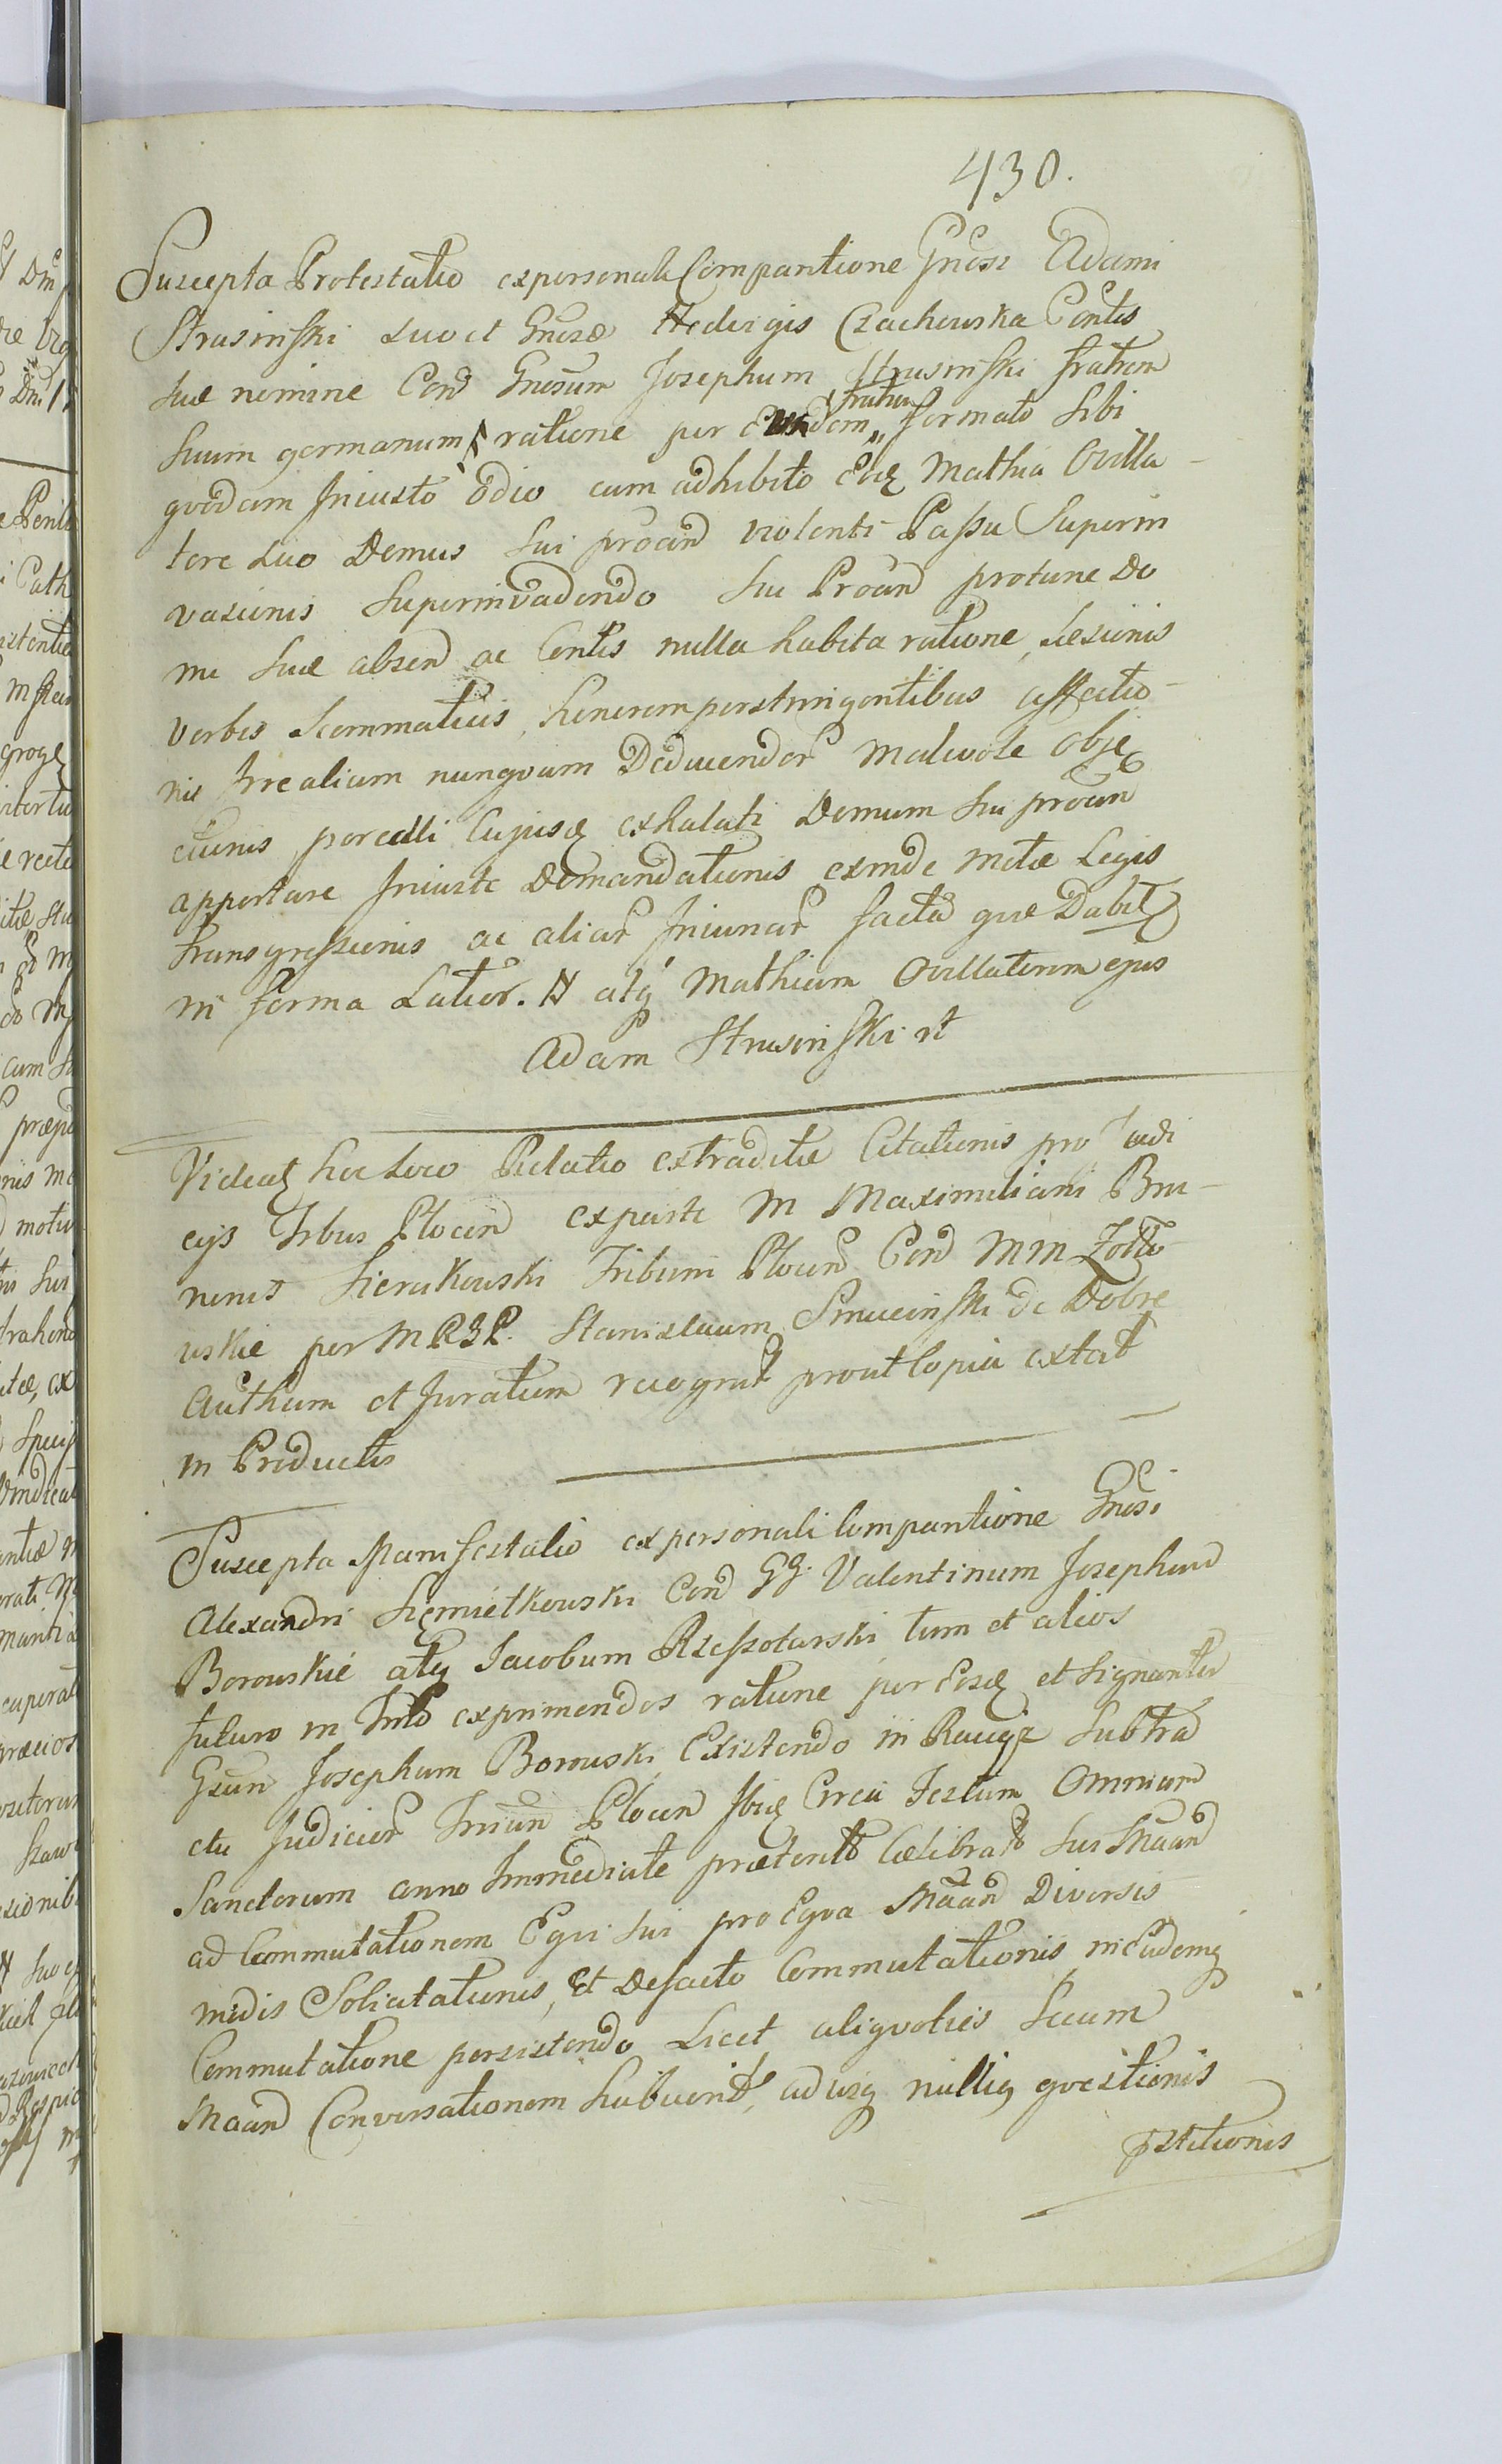 430.
Suscepta Protestatio ex personali Compantione Gnosi Adami
Strusinski suo et Gnosæ Hedvigis Czachowska Contis
suæ nomine Con Gnosum Josephum Strusinski fratrem
suum germanum ratione per Eundem fratrem formato sibi
quodam Iniusto odio cum adhibito Eoq Mathia Ovilla-
tore suo Domus sui procan violenti Passu Superin
vasionis superinvadendo sui Procan protunc Do
mi suæ absen ac Contis nulla habita ratione, læsionis
verbis scommaticis, honorem perstringentibus affectio-
nis Irrealium nunquam Deducendor malevole obje
ctionis, porcelli Cujusq exhalati Domum sui procan
apportare Iniuste Demandationis exinde metæ Legis
transgressionis ac aliar Iniuriar facta quæ Dabit
in forma Latior. N atq Mathiam Ovillatorem ejus
Adam Strusinski rt
Videat hoc Loco Relatio extraditæ Citationis pro Judi
cijs Trbus Plocen ex parte M Maximiliani Bru-
nonis Sierakowski Tribuni Plocen Con MM
uskie per M R G P. Stanislaum de Dobre
Authum et Juratum recognit prout Copia extat
in Productis
Suscepta Manifestatio ex personali Compantione Gnosi
Alexandri Siemiętkowski Con GG. Valentinum Josephum
Borowskie atq Jacobum Rzeszotarski tum et alios
futuro in Trlo exprimendos ratione per Eosq et signanter
Gsum Josephum Borowski Existendo in Raciąż sub tra
ctu Judicior Trian Plocen Ibiq Circa Festum Omnium
Sanctorum anno Immediate præterito Celibrato sui Maan
ad Commutationem Equi sui pro Equa Maan Diversis
modis Solicitationis, Et Defacto Commutationis, in Eademq
Commutatione persistendo Licet aliquoties secum
Maan Conversationem habuerit, adusq nullig qvestionis
pstitionis